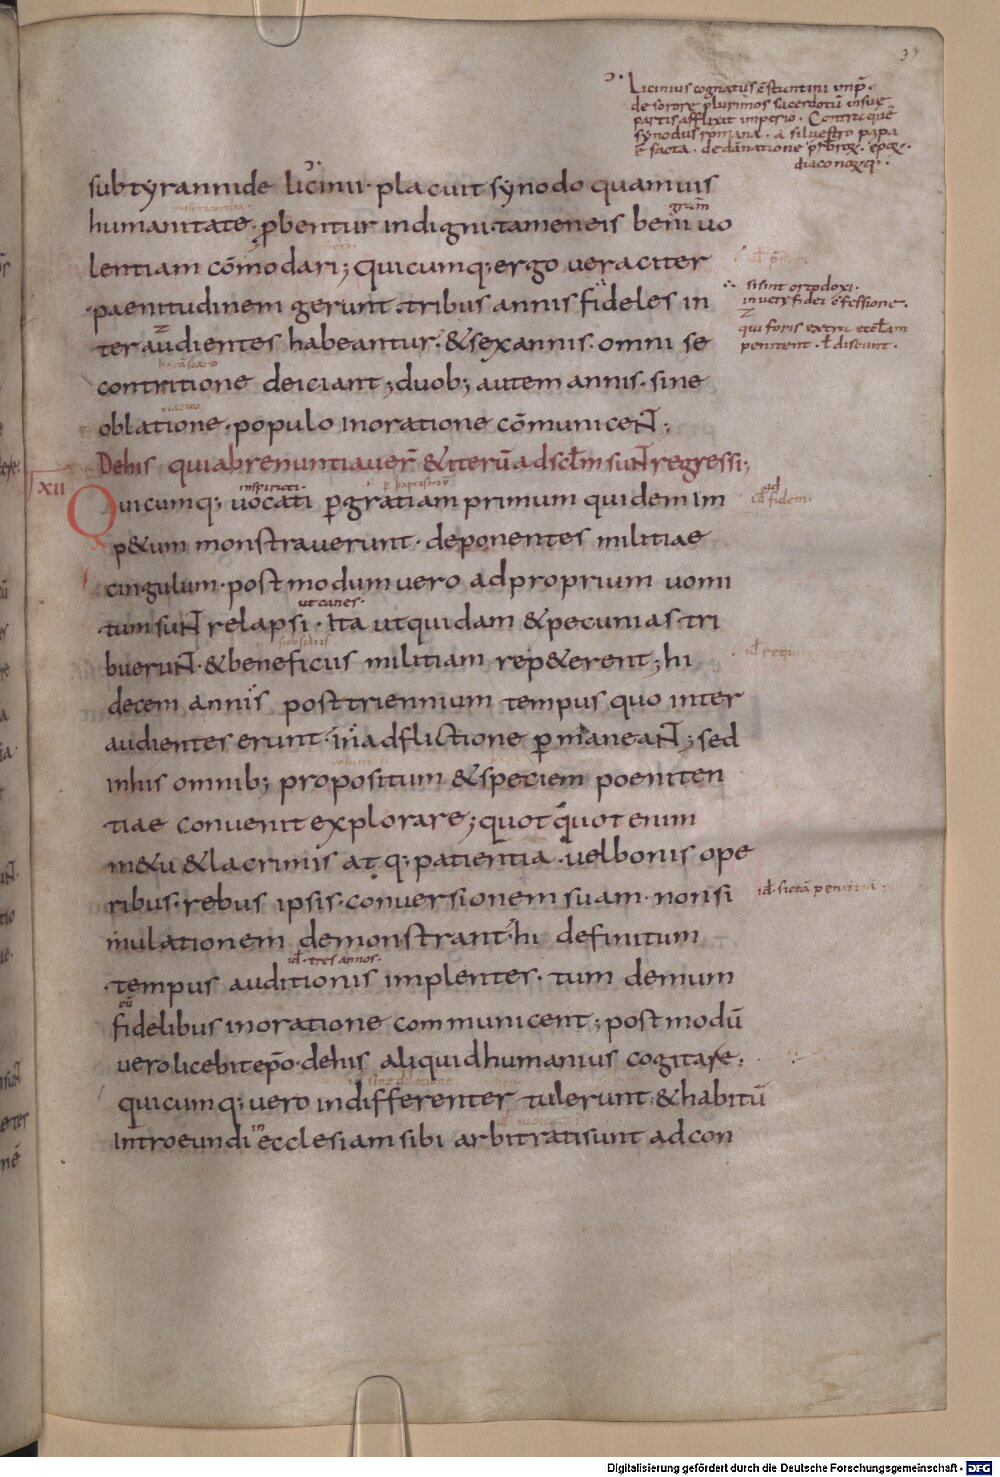 37
Licinius cognatus c̄stantini unp̄.
de sorore plurimos sacerdotū insue
partis afflixit imperio. Contra quē
synodus romana. a siluestro papa
ē facta. de dānatione
diaconoꝝq;.
sub tyrannide licinii. placuit synodo quamuis
humanitate. ꝓbentur indigni. tamen eis beniuo
lentiam cōmodari; Quicumq; ergo ueraciter
paenitudinem gerunt. tribus annis fideles in
si sint ortodoxi.
in uery fidei c̄fessione.
ter audientes habeantur. & sex annis. omni se
qui foris extra eccl̄am
penitent. ł discunt.
contritione deiciant; duob; autem annis. sine
oblatione. populo in oratione cōmunicent;
De his qui abrenuntiauer̄ & iterū ad sc̄lm sunt regressi;
XII
inspirati.
Quicumq; uocati ꝑ gratiam primum quidem im
ad
fidem.
p&um monstrauerunt. deponentes militiae
cingulum. postmodum uero ad proprium uomi
ut canes.
tum sunt relapsi. Ita ut quidam & pecunias tri
buerunt. & beneficiis militiam rep&erent; hi
decem annis post triennium tempus quo inter
audientes erunt. in adflictione ꝑmaneant; sed
in his omnib; propositum & speciem poeniten
tiae conuenit explorare; quotquot enim
m&u & lacrimis atq; patientia. uel bonis ope
ribus. rebus ipsis. conuersionem suam. non si
id. fictā
mulationem demonstrant. hi definitum
id. tres annos.
tempus auditionis implentes. tum demum
cū
fidelibus in oratione communicent; postmodū
uero licebit ep̄o. de his aliquid humanius cogitare;
quicumq; uero indifferenter tulerunt. & habitū
introeundi in ecclesiam sibi arbitrati sunt ad con
Digitalisierung gefördert durch die Deutsche Forschungsgemeinschaft - DFG